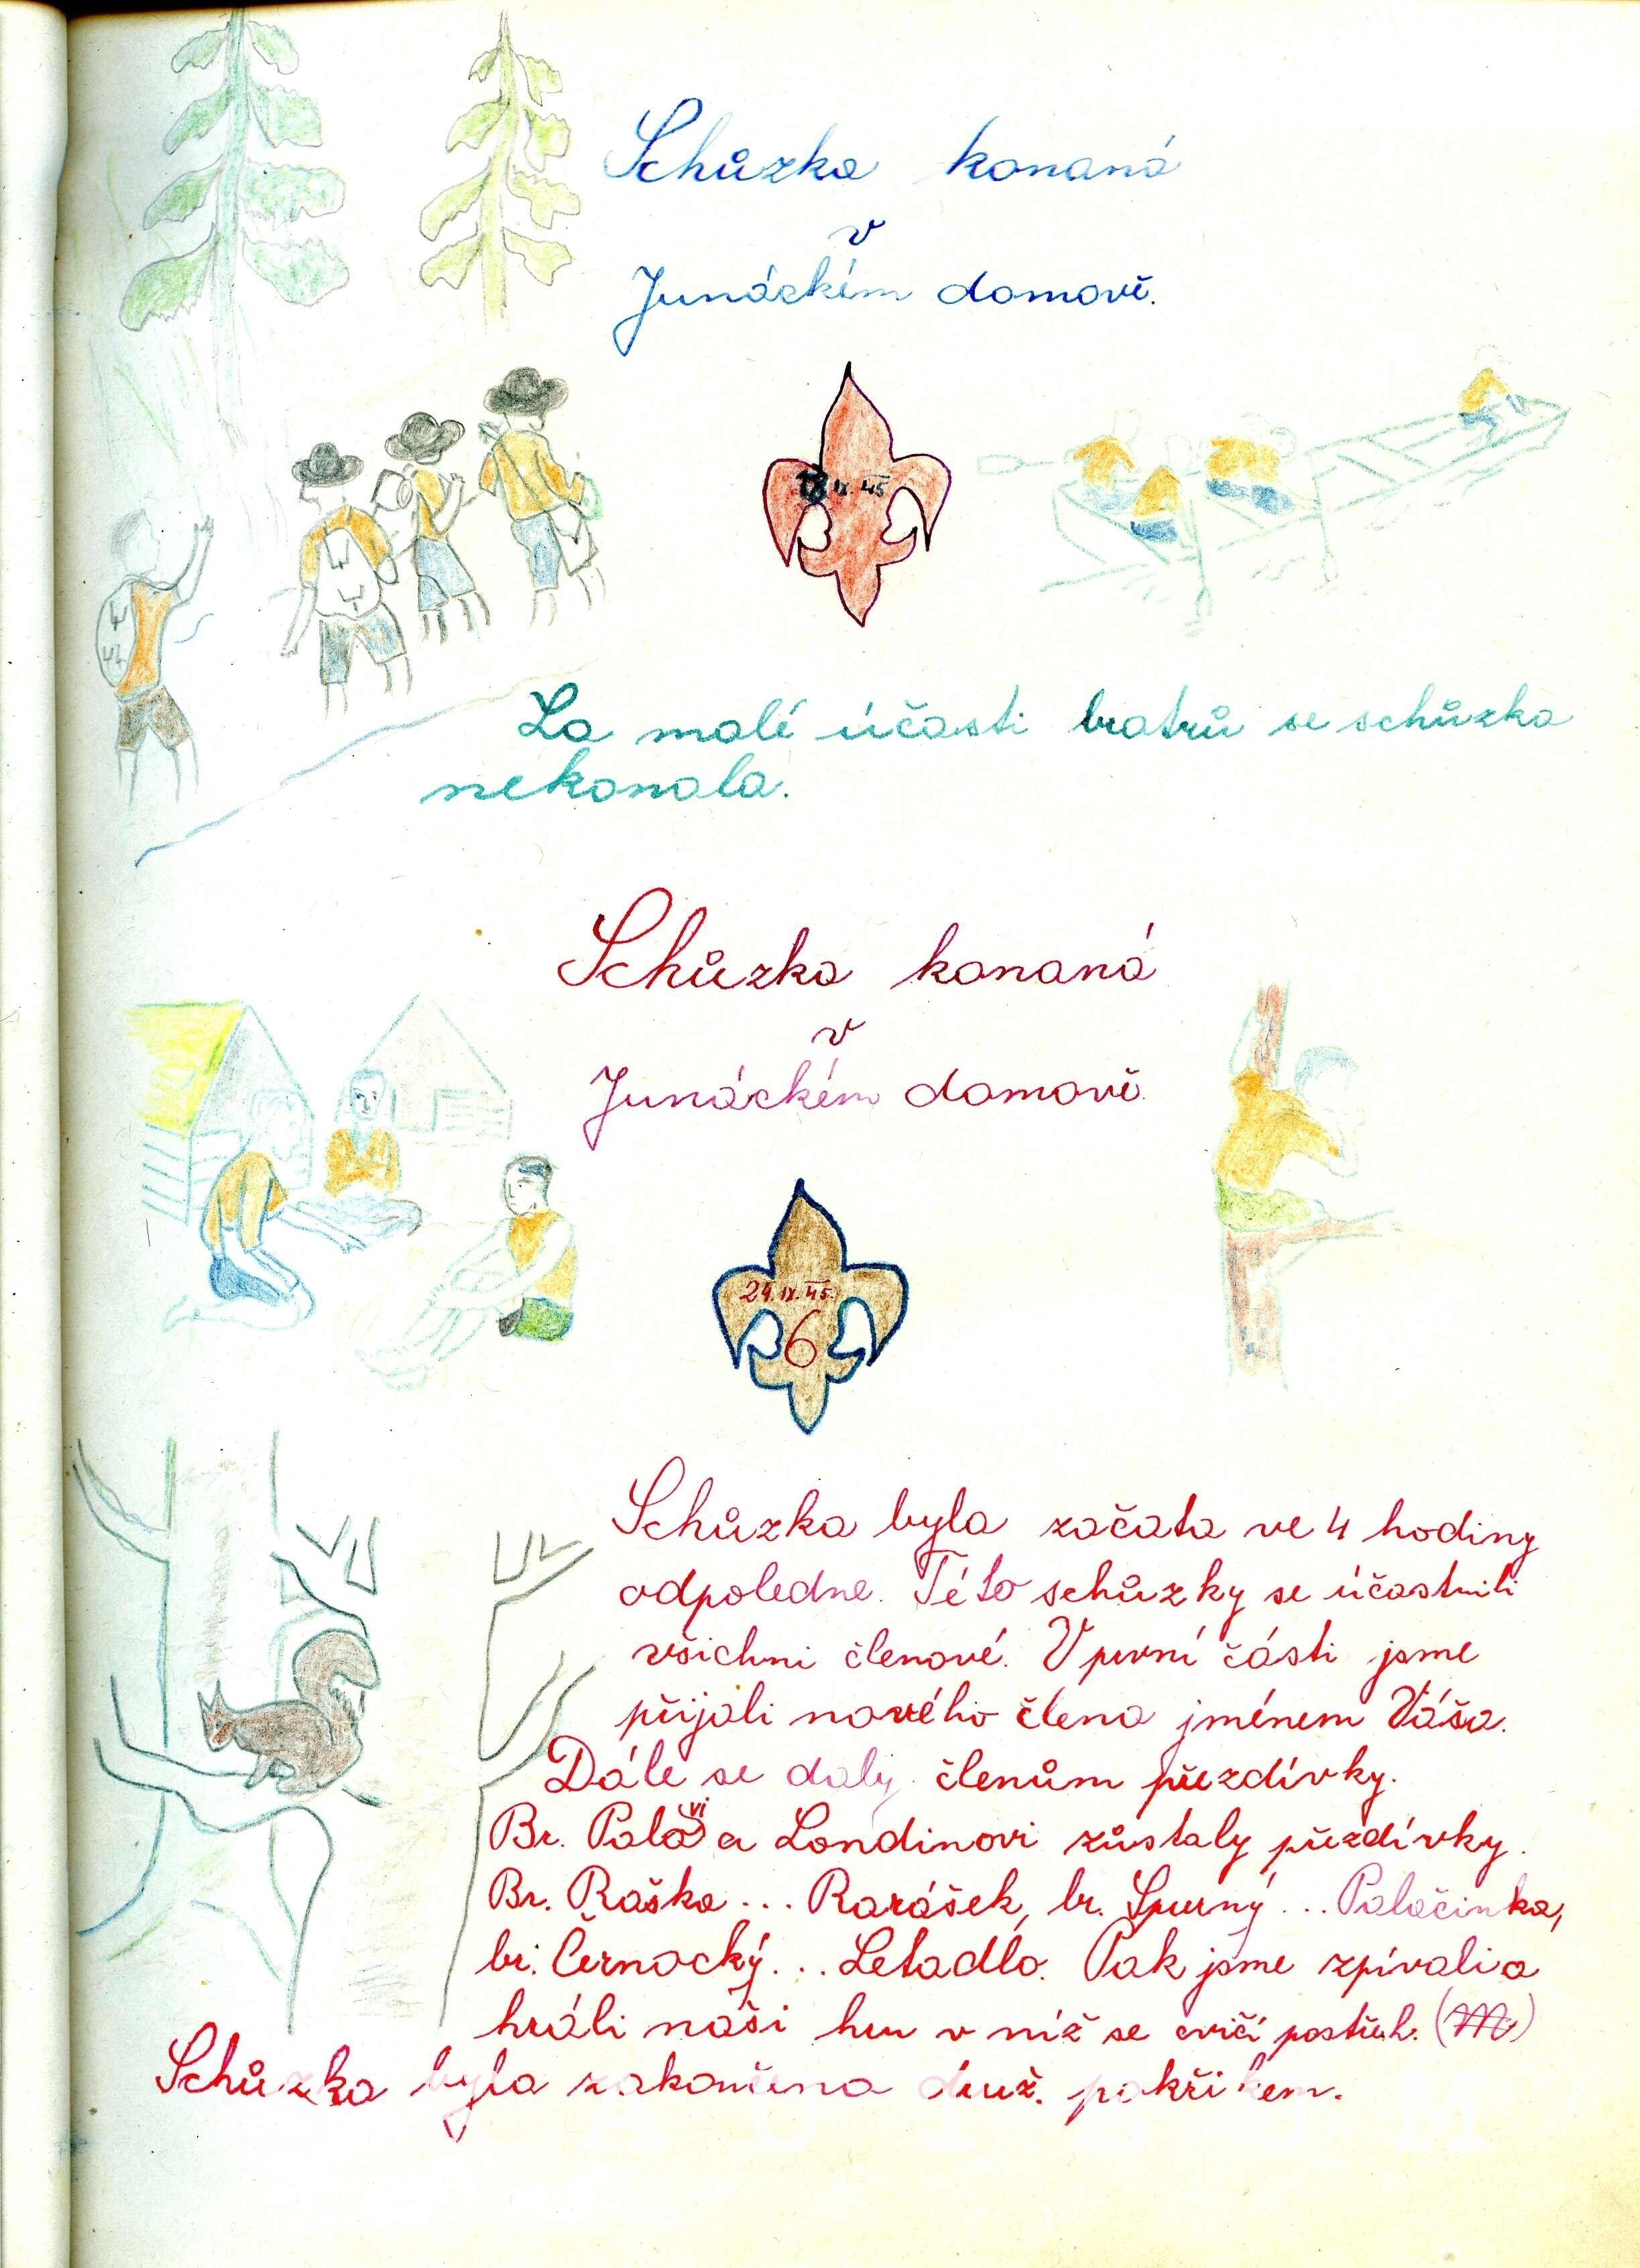 Schůzka konaná
v
Junáckém domově.
18 IX. 45
Za malé účasti bratrů se schůzka
nekonala.
Schůzka konaná
v
Junáckém domově.
24. IX. 45.
6
Schůzka byla začata ve 4 hodiny
odpoledne. Této schůzky se účastnili
všichni členové. V první části jsme
přijali nového člena jménem Váša.
Dále se daly členům přezdívky.
Br. Palovi a Londinovi zůstaly přezdívky.
Br. Raška ... Rarášek, br. Spurný ... Palačinka,
br. Černocký ... Letadlo. Pak jsme zpívali a
hráli náši hru v níž se cvičí postřeh.
Schůzka byla zakončena druž. pokřikem.